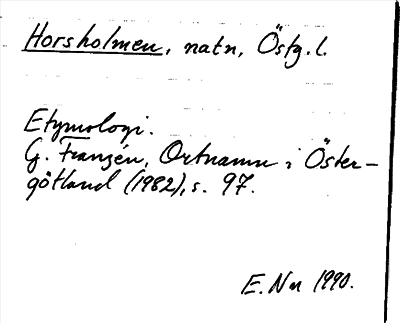 Horsholmen, natn, Östg. l.
Etymologi.
G. Franzén, Ortnamn i Öster-
götland (1982), s. 97.
E. Nn 1990.